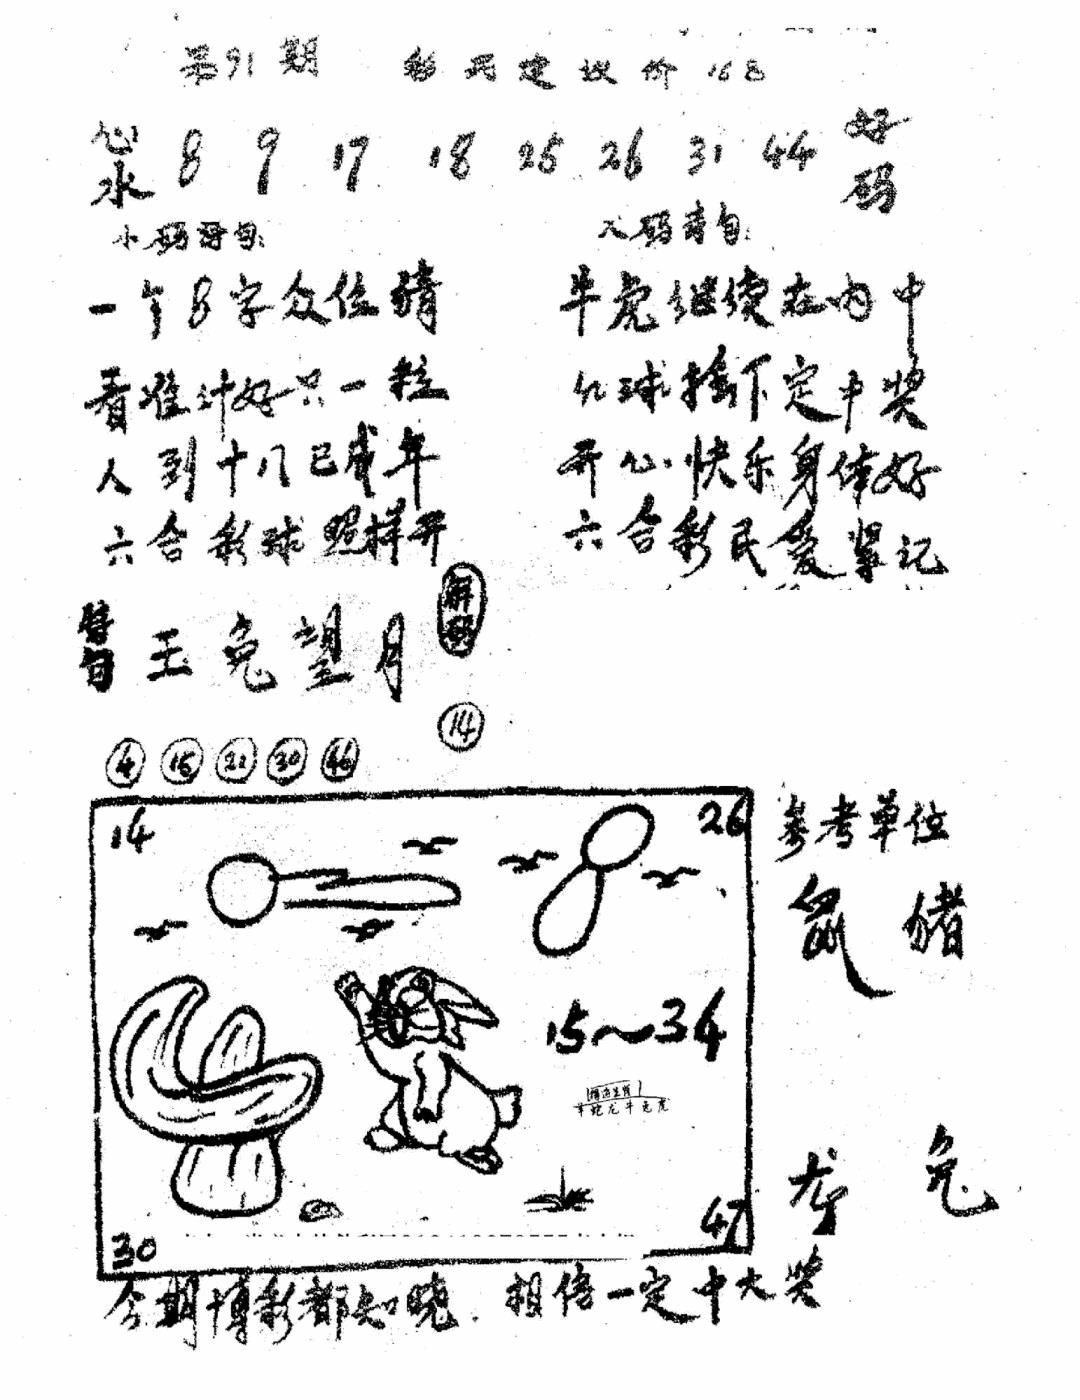 第91期 彩民建议价16元
心水 8 9 17 18 25 26 31 44 好码
小码诗句：
一个8字众位猜
看准计好只一粒
人到十八已成年
六合彩球照样开
大码诗句：
牛虎继续在内中
红球擒下定中奖
开心快乐身体好
六合彩民爱紧记
玉兔望月
解码
14
4 15 21 30 46
14
26
参考单位
鼠 猪
15～34
羊蛇龙牛兔虎
龙 兔
30
47
今期博彩都知晓 相信一定中大奖